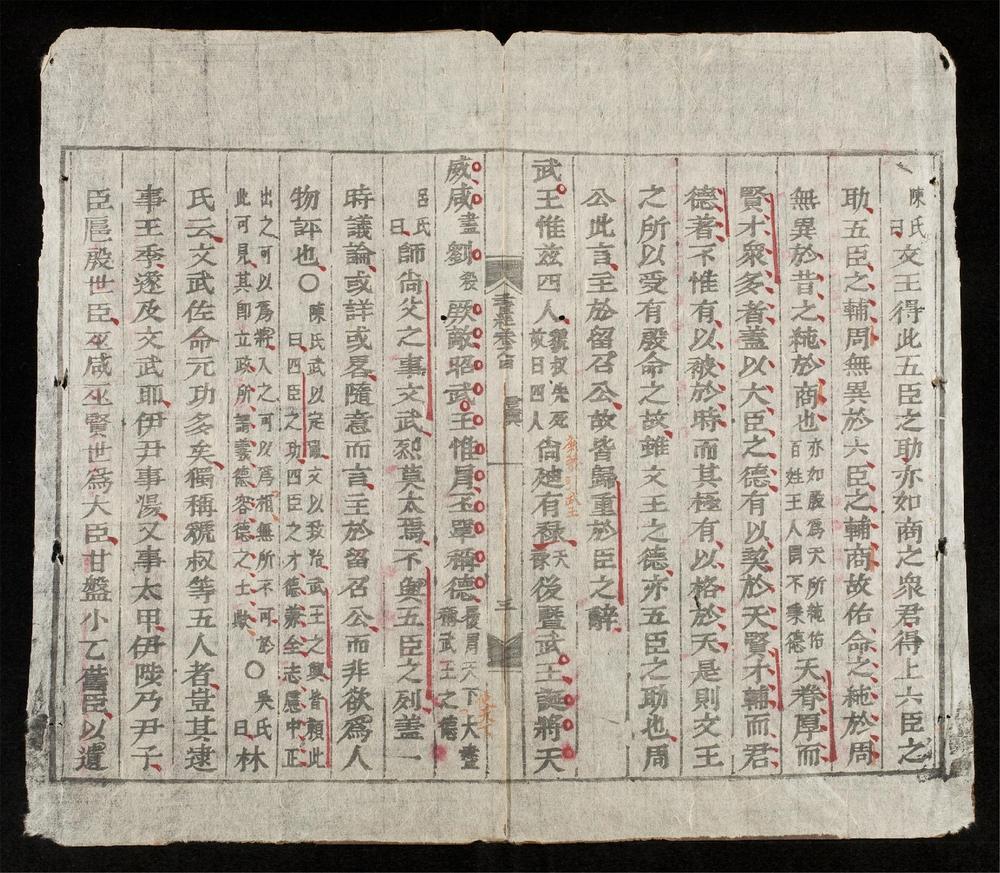 陳氏曰文王得此五臣之助亦如商之衆君得上六臣之
助五臣之輔周無異於六臣之輔商故佑命之純於周
無異於昔之純於商也亦如殷爲天所純佑百姓王人罔不秉德天眷厚而
賢才衆多者蓋以大臣之德有以契於天賢才輔而君
德著不惟有以被於時而其極有以格於天是則文王
之所以受有殷命之故雖文王之德亦五臣之助也周
公此言主於留召公故皆歸重於臣之辭
武王惟兹四人虢叔先死故曰四人尙廸有祿天祿後曁武王誕將天
威咸盡劉殺厥敵昭武王惟冒丕單稱德覆冒天下大盡稱武王之德
呂氏曰師尙父之事文武烈莫大焉不與五臣之列蓋一
時議論或詳或畧隨意而言主於留召公而非欲爲人
物評也○陳氏曰武以定亂文以致治武王之興皆頼此四臣之功四臣之才德兼全志慮中正
出之可以爲將入之可以爲相無所不可於此可見其卽立政所謂義德容德之士歟○吳氏曰林
氏云文武佐命元功多矣獨稱虢叔等五人者豈其逮
事王季遂及文武耶伊尹事湯又事太甲伊陟乃尹子
臣扈殷世臣巫咸巫賢世爲大臣甘盤小乙舊臣以遺
書經卷之四
君奭
三